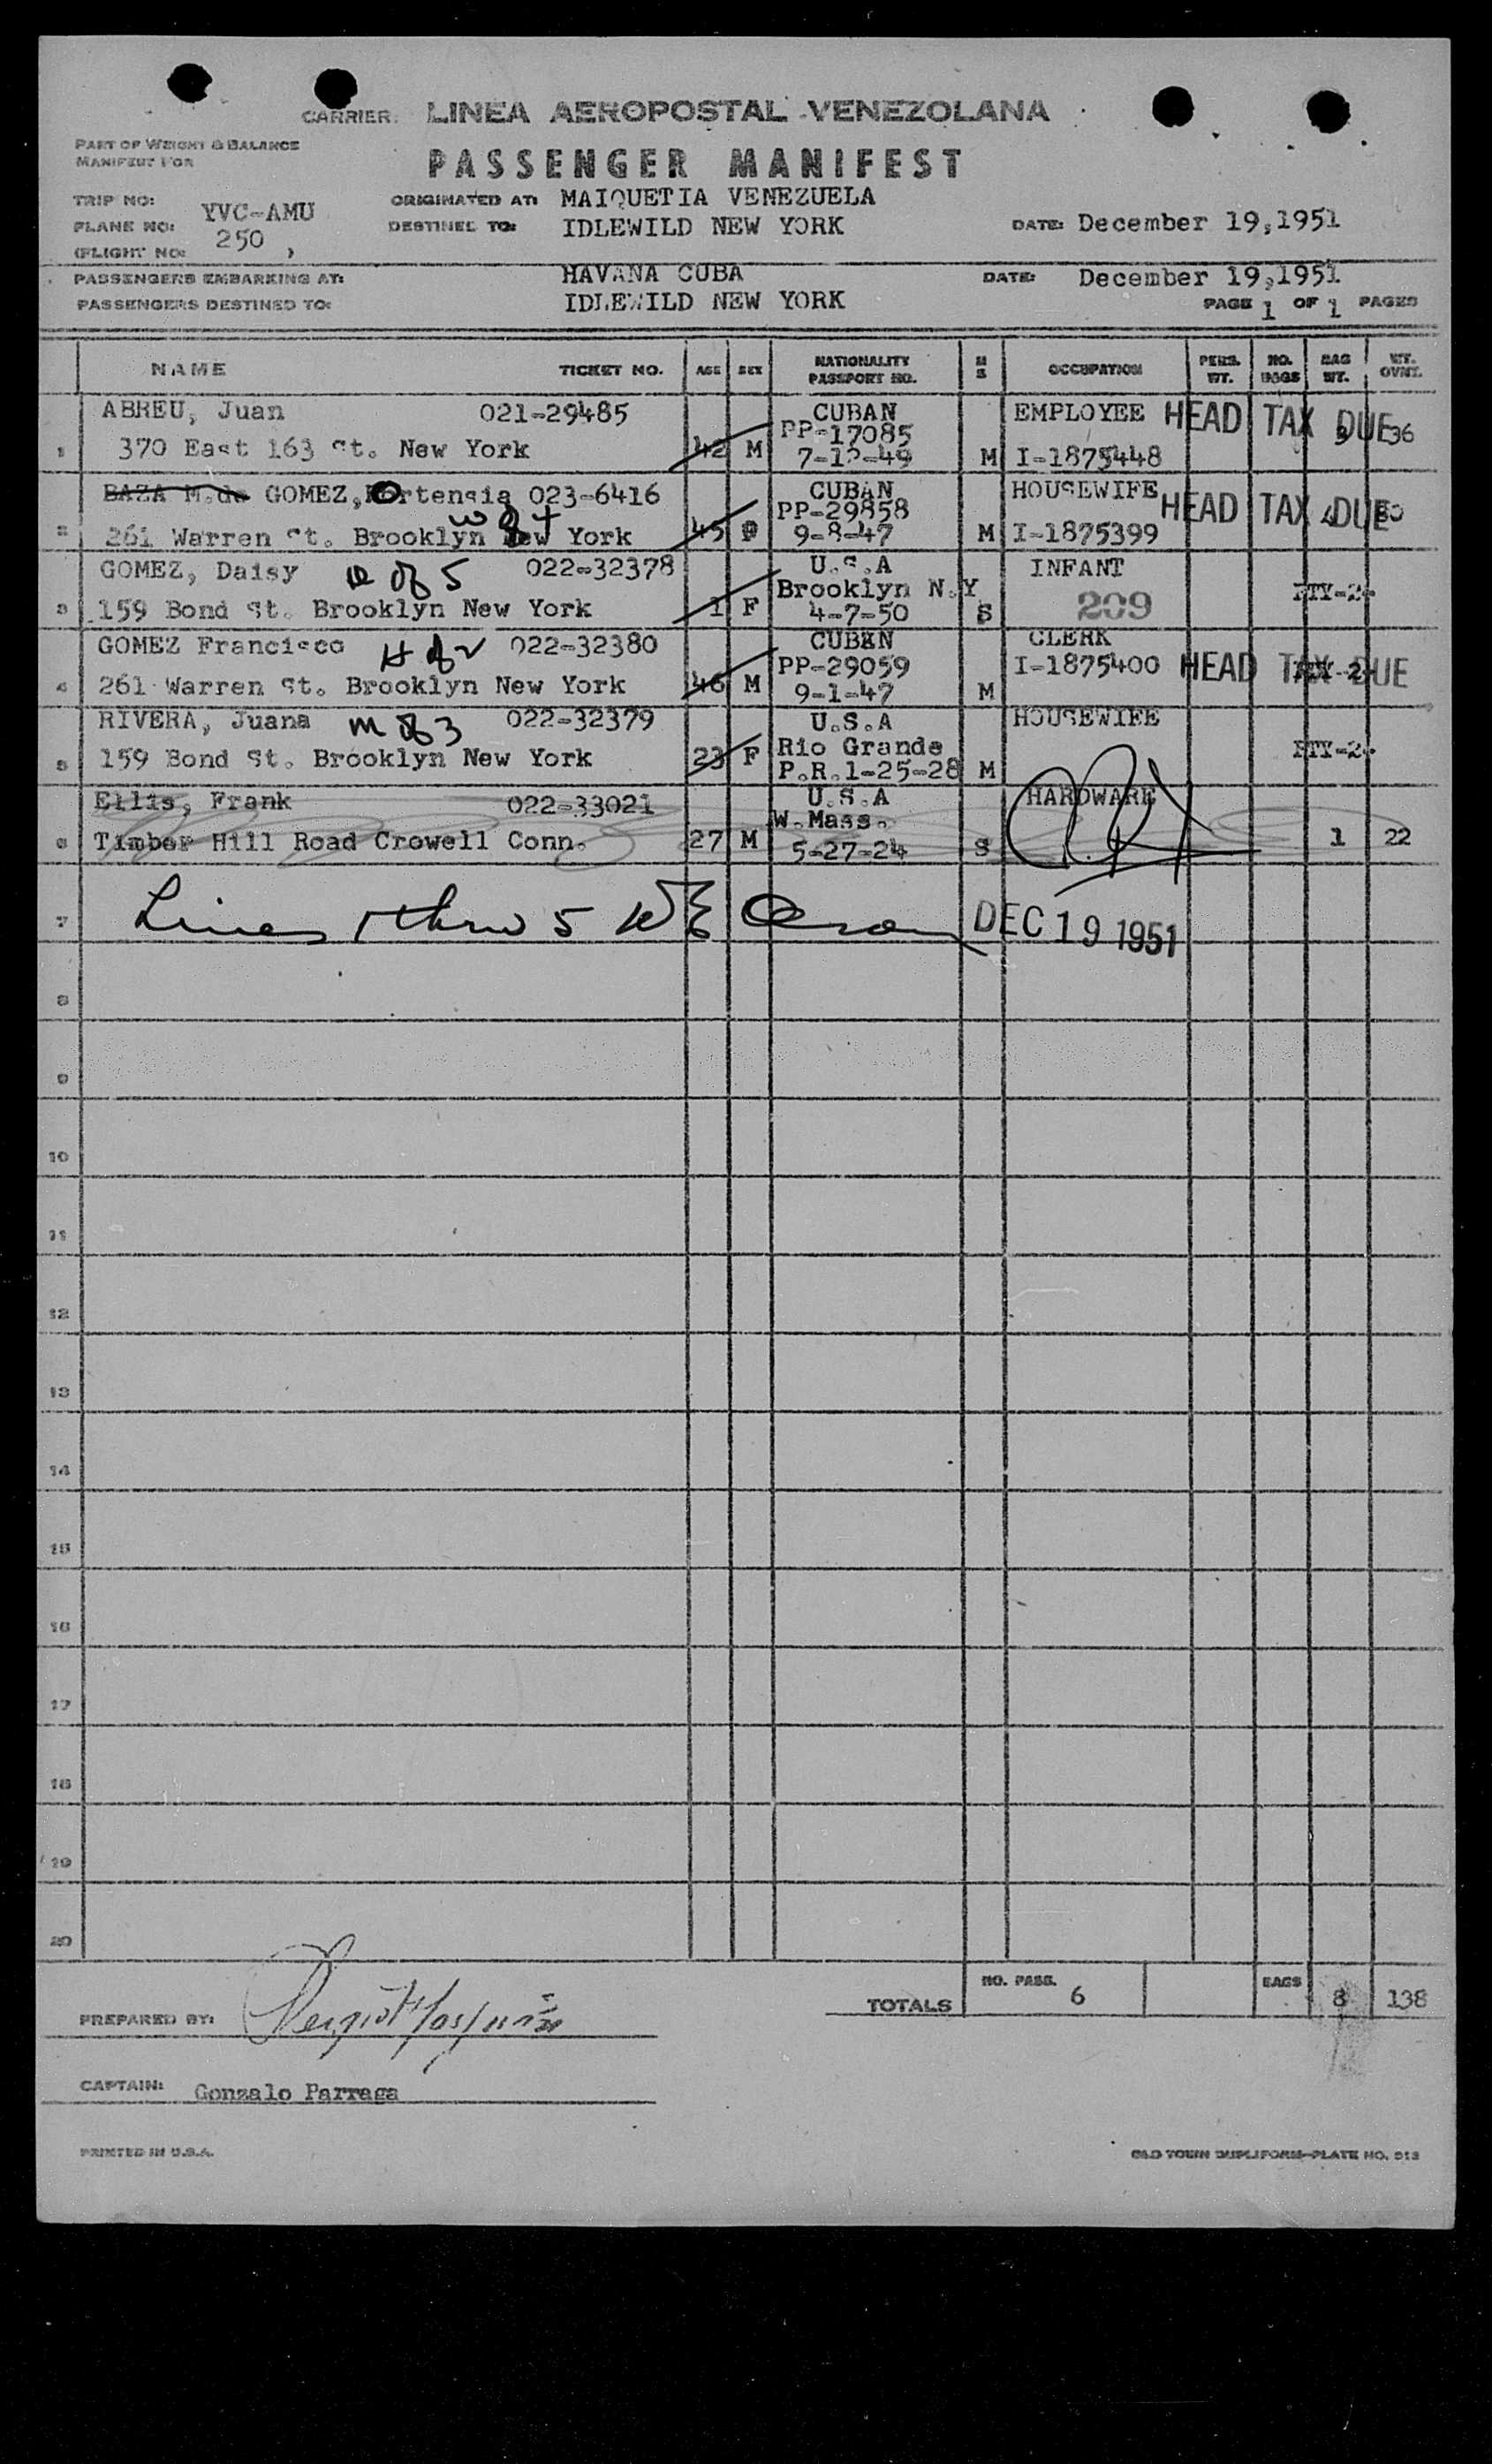 CARRIER: LINEA AEROPOSTAL VENEZOLANA
PART OF WEIGHT & BALANCE
MANIFEST FOR
PASSENGER MANIFEST
TRIP NO:
ORIGINATED AT: MAIQUETIA VENEZUELA
PLANE NO: YVC-AMU
DESTINED TO: IDLEWILD NEW YORK
DATE: December 19,1951
(FLIGHT NO: 250 )
PASSENGERS EMBARKING AT: HAVANA CUBA
DATE: December 19,1951
PASSENGERS DESTINED TO: IDLEWILD NEW YORK
PAGE 1 OF 1 PAGES
NAME TICKET NO. AGE SEX NATIONALITY PASSPORT NO. M S OCCUPATION PERS. WT. NO. BAGS BAG WT. WT. OVNT.
ABREU, Juan 021-29485 CUBAN EMPLOYEE HEAD TAX DUE 36
PP-17085
1 370 East 163 St. New York 42 M 7-12-49 M I-1875448
BAZA M.de GOMEZ, Hortensia 023-6416 CUBAN HOUSEWIFE HEAD TAX DUE
W of 4 PP-29858
2 261 Warren St. Brooklyn New York 45 9-8-47 M I-1875399
GOMEZ, Daisy D of 5 022-32378 U.S.A INFANT
Brooklyn N.Y
3 159 Bond St. Brooklyn New York 1 F 4-7-50 S 209 PTY-2-
GOMEZ Francisco H of 2 022-32380 CUBAN CLERK
PP-29059 I-1875400 HEAD TAX DUE
4 261 Warren St. Brooklyn New York 46 M 9-1-47 M
RIVERA, Juana M of 3 022-32379 U.S.A HOUSEWIFE
Rio Grande PTY-2-
5 159 Bond St. Brooklyn New York 23 F P.R.1-25-28 M
Ellis, Frank 022-33021 U.S.A HARDWARE
W.Mass.
6 Timber Hill Road Crowell Conn. 27 M 5-27-24 S 1 22
7 Lines 1 thru 5 DEC 19 1951
8
9
10
11
12
13
14
15
16
17
18
19
20
TOTALS NO. PASS. 6 BAGS 8 138
PREPARED BY:
CAPTAIN: Gonzalo Parraga
PRINTED IN U.S.A.
OLD TOWN DUPLIFORM-PLATE NO. 513